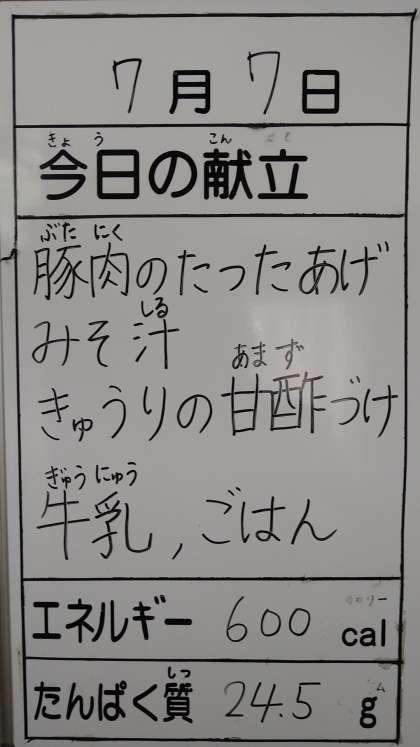 7月7日
きょう こん
今日の献立
ぶた にく
豚肉のたったあげ
しる
みそ汁
あま ず
きゅうりの甘酢づけ
ぎゅう にゅう
牛乳,ごはん
エネルギー 600 cal
しつ
たんぱく質 24.5 g